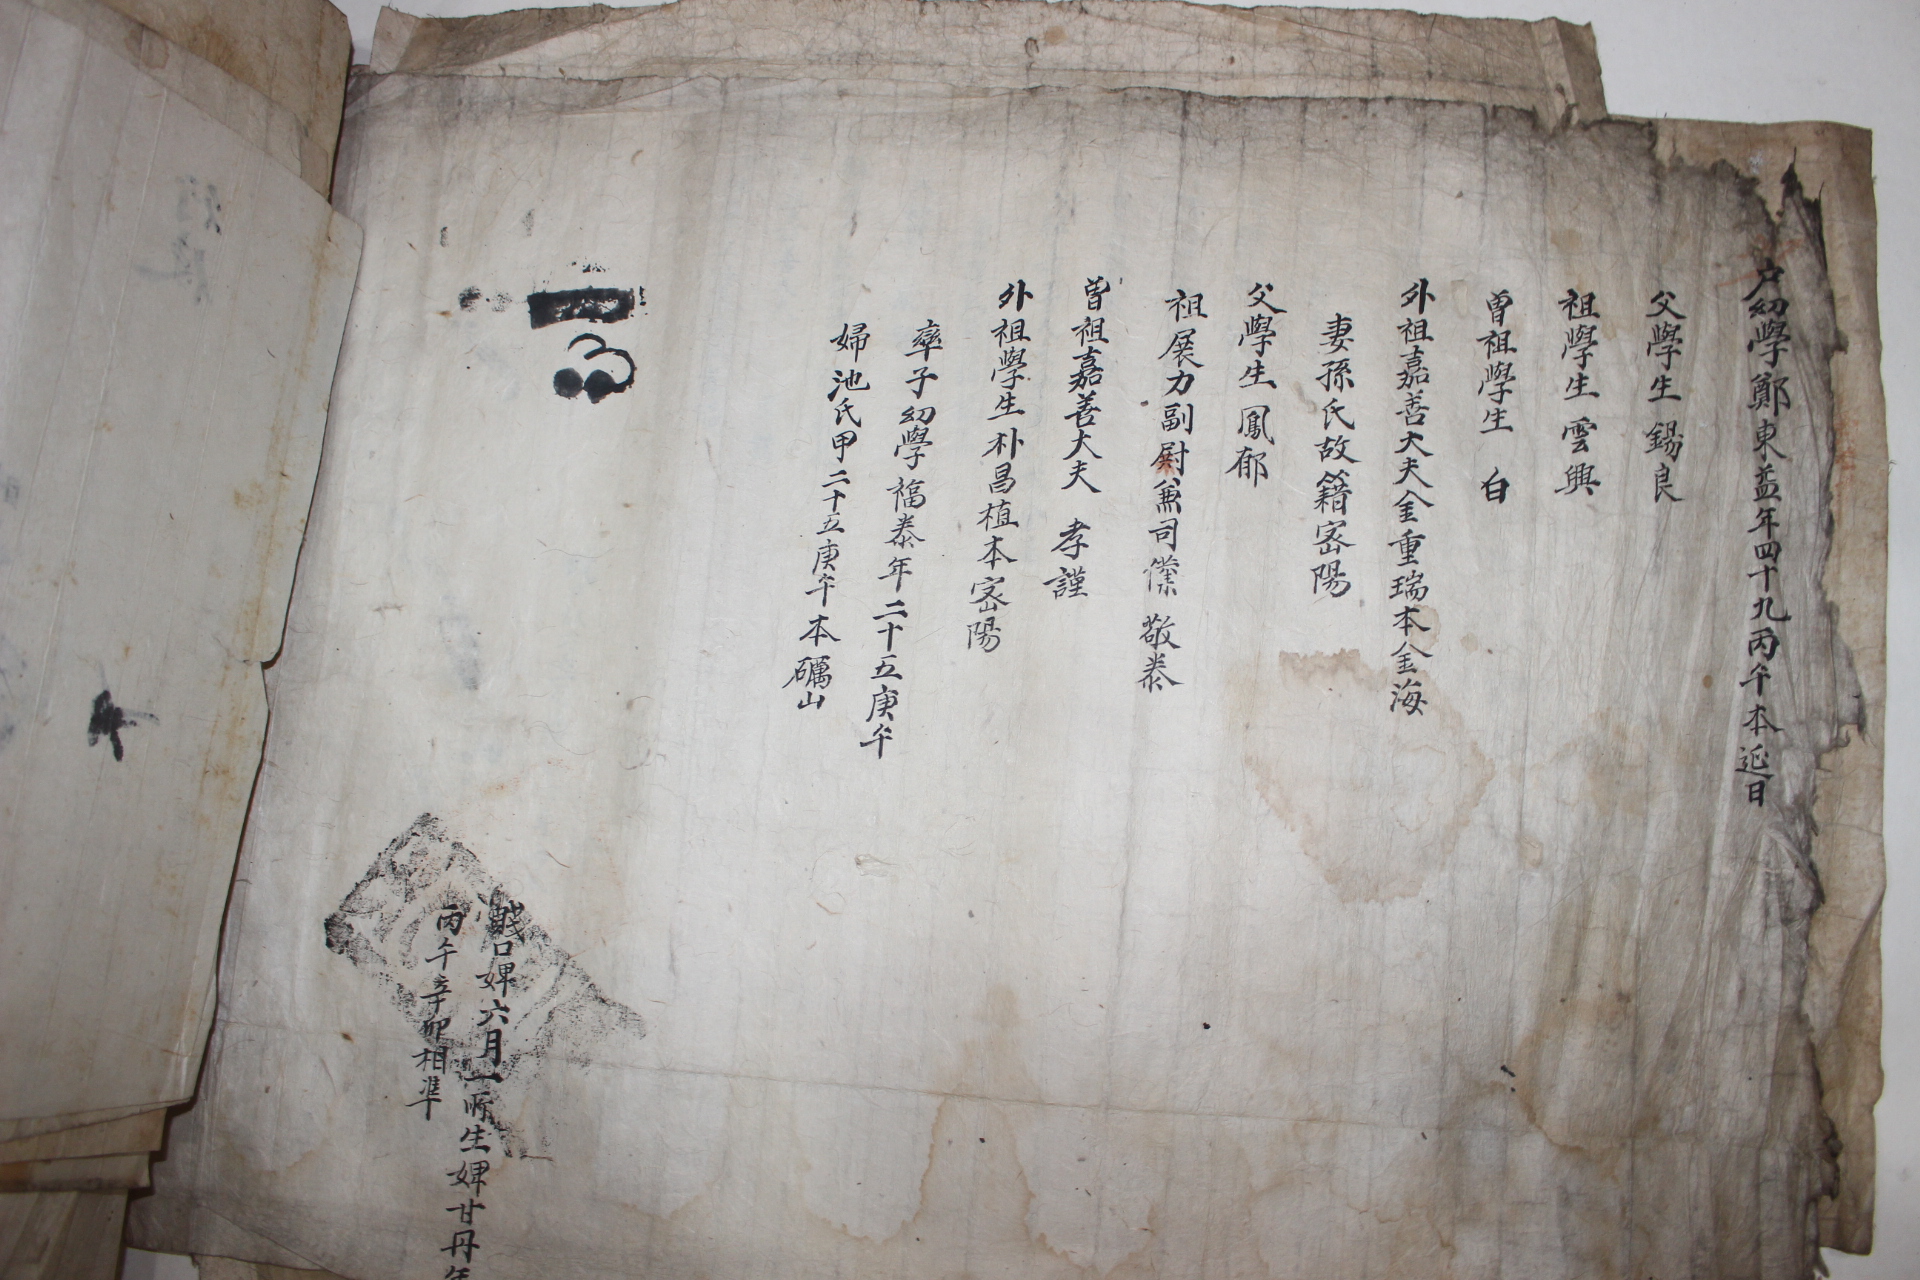 户幼學鄭東益年四十九丙午本延日
父學生錫良
祖學生雲興
曾祖學生 白
外祖嘉善大夫金重瑞本金海
妻孫氏故籍密陽
父學生鳳郁
祖展力副尉兼司僕 敬泰
曾祖嘉善大夫 孝謹
外祖學生朴昌植本密陽
率子幼學福泰年二十五庚午
婦池氏甲二十五庚午本礪山
賤口婢六月一所生婢甘丹年
丙午辛卯相準